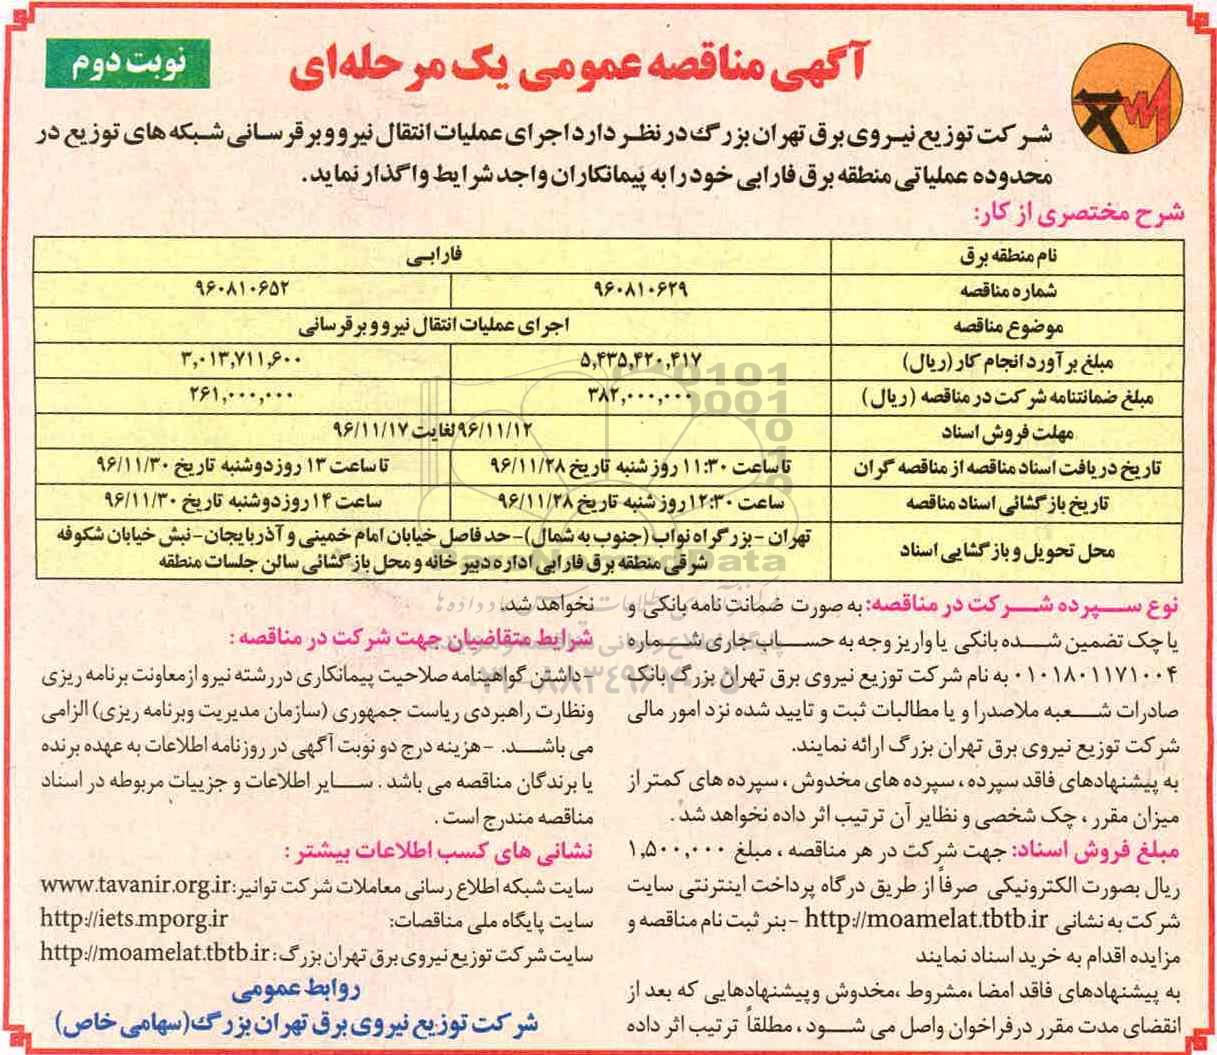 آگهی مناقصه عمومی یک مرحله‌ای
نوبت دوم
شرکت توزیع نیروی برق تهران بزرگ در نظر دارد اجرای عملیات انتقال نیرو و برقرسانی شبکه های توزیع در
محدوده عملیاتی منطقه برق فارابی خود را به پیمانکاران واجد شرایط واگذار نماید.
شرح مختصری از کار:
نام منطقه برق فارابی
شماره مناقصه ۹۶۰۸۱۰۶۲۹ ۹۶۰۸۱۰۶۵۲
موضوع مناقصه اجرای عملیات انتقال نیرو و برقرسانی
مبلغ برآورد انجام کار (ریال) ۵,۴۳۵,۴۲۰,۴۱۷ ۳,۰۱۳,۷۱۱,۶۰۰
مبلغ ضمانتنامه شرکت در مناقصه (ریال) ۳۸۲,۰۰۰,۰۰۰ ۲۶۱,۰۰۰,۰۰۰
مهلت فروش اسناد ۹۶/۱۱/۱۲ لغایت ۹۶/۱۱/۱۷
تاریخ دریافت اسناد مناقصه از مناقصه گران تا ساعت ۱۱:۳۰ روز شنبه تاریخ ۹۶/۱۱/۲۸ تا ساعت ۱۳ روز دوشنبه تاریخ ۹۶/۱۱/۳۰
تاریخ بازگشائی اسناد مناقصه ساعت ۱۲:۳۰ روز شنبه تاریخ ۹۶/۱۱/۲۸ ساعت ۱۴ روز دوشنبه تاریخ ۹۶/۱۱/۳۰
محل تحویل و بازگشایی اسناد تهران - بزرگراه نواب (جنوب به شمال) - حد فاصل خیابان امام خمینی و آذربایجان - نبش خیابان شکوفه
شرقی منطقه برق فارابی اداره دبیر خانه و محل بازگشائی سالن جلسات منطقه
نوع سپرده شرکت در مناقصه: به صورت ضمانت نامه بانکی و
یا چک تضمین شده بانکی یا واریز وجه به حساب جاری شماره
۰۱۰۱۸۰۱۱۷۱۰۰۴ به نام شرکت توزیع نیروی برق تهران بزرگ بانک
صادرات شعبه ملاصدرا و یا مطالبات ثبت و تایید شده نزد امور مالی
شرکت توزیع نیروی برق تهران بزرگ ارائه نمایند.
به پیشنهادهای فاقد سپرده ، سپرده های مخدوش ، سپرده های کمتر از
میزان مقرر ، چک شخصی و نظایر آن ترتیب اثر داده نخواهد شد .
مبلغ فروش اسناد: جهت شرکت در هر مناقصه ، مبلغ ۱,۵۰۰,۰۰۰
ریال بصورت الکترونیکی صرفاً از طریق درگاه پرداخت اینترنتی سایت
شرکت به نشانی http://moamelat.tbtb.ir - بنر ثبت نام مناقصه و
مزایده اقدام به خرید اسناد نمایند
به پیشنهادهای فاقد امضا ،مشروط ،مخدوش وپیشنهادهایی که بعد از
انقضای مدت مقرر درفراخوان واصل می شود ، مطلقاً ترتیب اثر داده
نخواهد شد.
شرایط متقاضیان جهت شرکت در مناقصه :
-داشتن گواهینامه صلاحیت پیمانکاری در رشته نیرو از معاونت برنامه ریزی
ونظارت راهبردی ریاست جمهوری (سازمان مدیریت وبرنامه ریزی) الزامی
می باشد. -هزینه درج دو نوبت آگهی در روزنامه اطلاعات به عهده برنده
یا برندگان مناقصه می باشد . سایر اطلاعات و جزییات مربوطه در اسناد
مناقصه مندرج است .
نشانی های کسب اطلاعات بیشتر :
سایت شبکه اطلاع رسانی معاملات شرکت توانیر: www.tavanir.org.ir
سایت پایگاه ملی مناقصات: http://iets.mporg.ir
سایت شرکت توزیع نیروی برق تهران بزرگ: http://moamelat.tbtb.ir
روابط عمومی
شرکت توزیع نیروی برق تهران بزرگ (سهامی خاص)